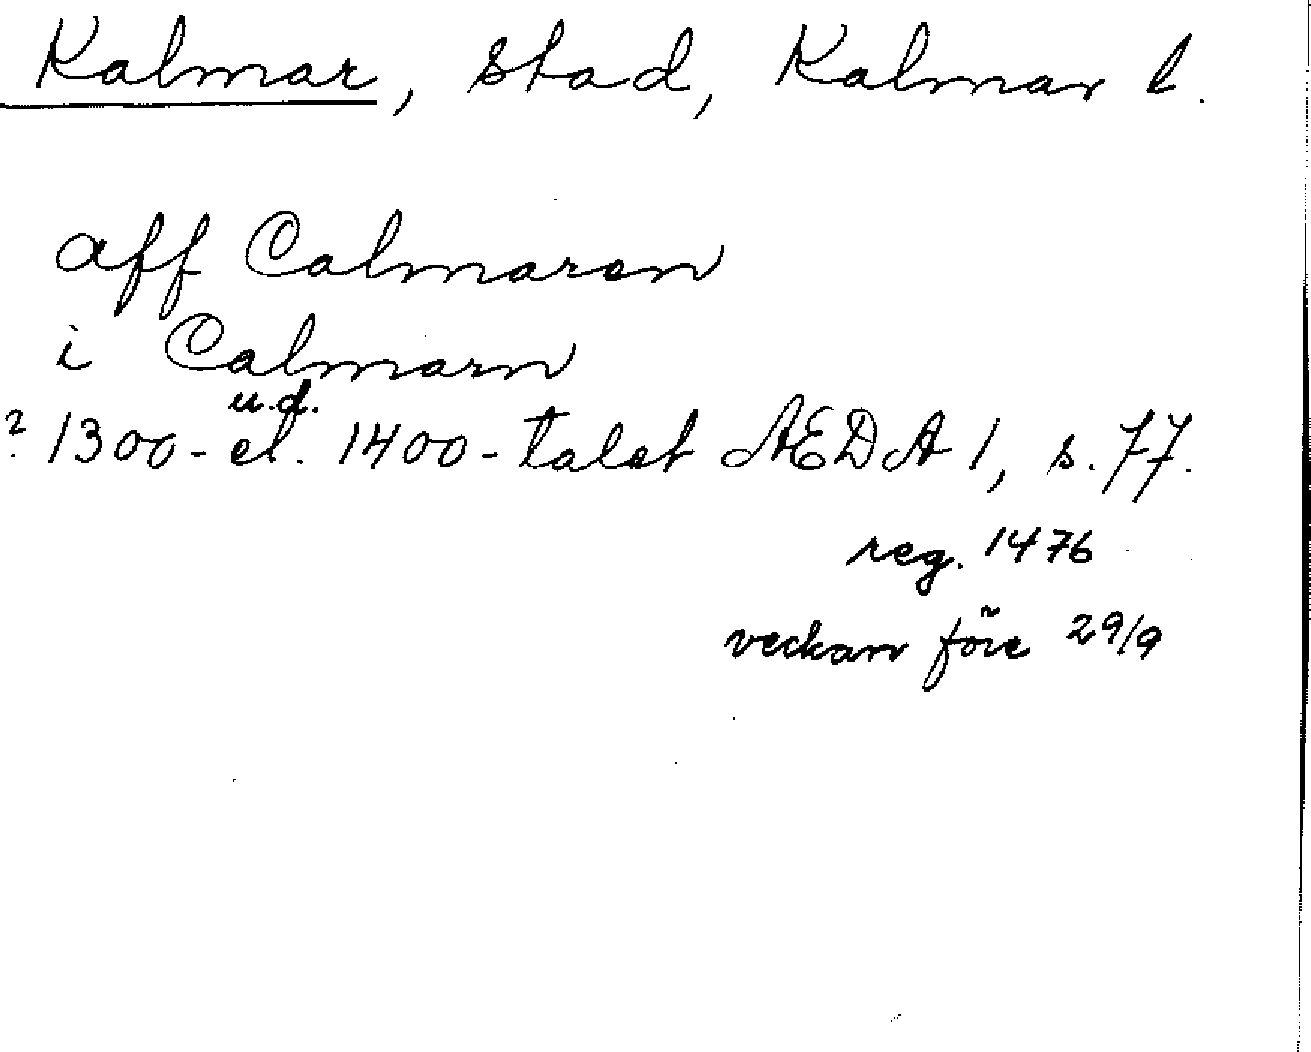 Kalmar, stad, Kalmar l.
aff Calmaren
i Calmarn
u.d.
? 1300- el. 1400-talet AEDA 1, s. 77.
reg. 1476
veckan före 29/9